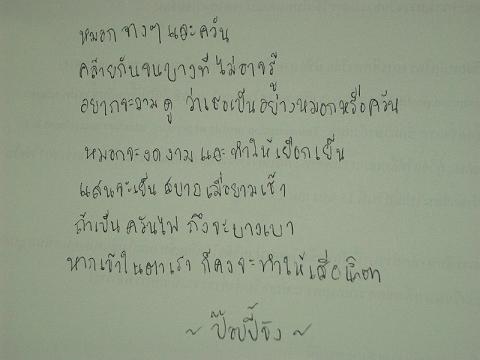 หมอกจางๆ และควัน
คล้ายกันจนบางทีไม่อาจรู้
อยากจะถามดู ว่าเธอเป็นอย่างหมอกหรือควัน
หมอกจะงดงาม และทำให้เยือกเย็น
แสนจะเย็นสบายเมื่อยามเช้า
ถ้าเป็นควันไฟ ถึงจะบางเบา
หากเข้าในตาเรา ก็คงจะทำให้เสีย
~ ป๊อปปี้ ~